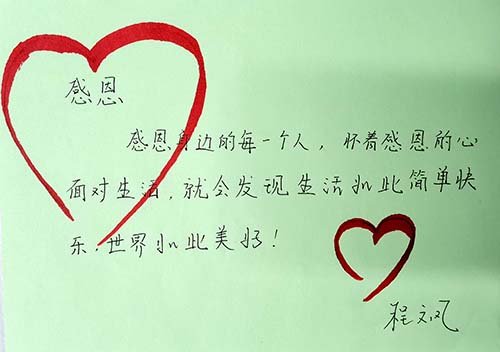 感恩
感恩身边的每一个人，怀着感恩的心
面对生活，就会发现生活如此简单快
乐，世界如此美好！
程文风